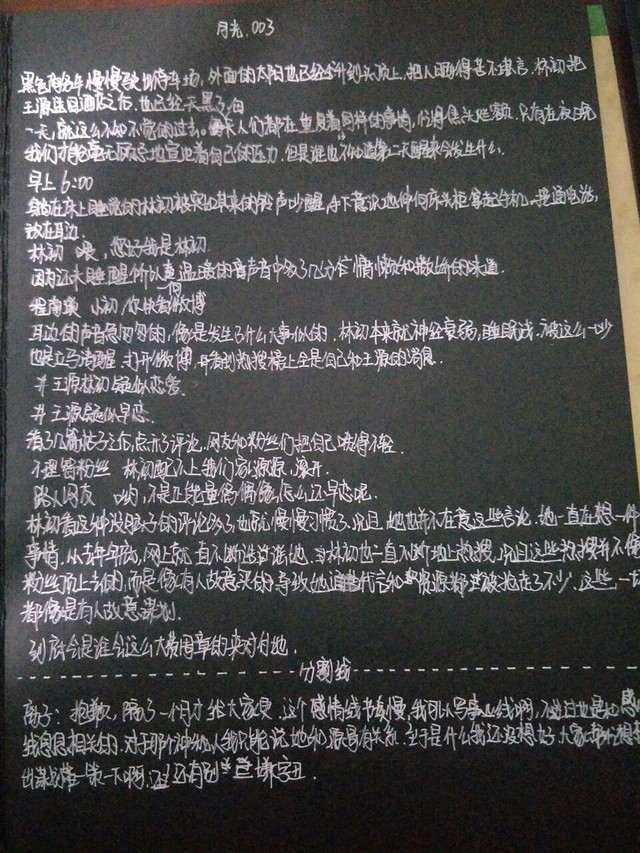 月光.003
黑色商务车慢慢驶出停车场，外面的太阳也已经升到头顶上，把人晒得苦不堪言，林初把
王源送回酒店后，也已经天黑了，
一天，就这么不知不觉的过去。每天人们都在重复着同样的事情，忙得焦头烂额，只有在夜晚
我们才能毫无顾忌地宣泄着自己的压力，但是谁也不知道第二天醒来会发生什么。
早上6:00
躺在床上睡觉的林初被突如其来的铃声吵醒，下意识地伸向床头柜拿起手机，接通电话，
放在耳边。
林初 喂，您好我是林初。
因为还未睡醒所以温端的声音中多了几分慵懒和撒娇的味道。
小初你快看微博
耳边的声音急匆匆的，像是发生了什么大事似的，林初本来就神经衰弱，睡眠浅，被这么一吵
也是立马清醒，打开微博，看到热搜榜上全是自己和王源的消息。
#王源林初疑似恋爱
#王源疑似早恋
看了几篇帖子之后，点开了评论，网友和粉丝们把自己喷得不轻。
不理智粉丝 林初配不上我们家源源，滚开。
路人网友 哟，不是正能量偶像，怎么还早恋呢。
林初看这种没脑子的评论多了也就慢慢习惯了，况且，她也并不在意这些言论，她一直在想一件
事情，从去年年底，网上就一直不断造谣她，林初也一直不断地上热搜，况且这些热搜并不像
粉丝顶上去的，而是像有人故意买的，导致她代言和资源都被抢走了不少，这些，一切
都像是有人故意谋划。
到底会是谁会这么大费周章的来对付她。
分割线
离子：抱歉，隔了一个月才给大家更，这个感情线节奏慢，我可以写事业线啊，不过也是和感情
线息息相关的，对于那个神秘人我只能说她和源哥有关系，至于是什么我还没想好，大家
出谋划策一下啊，